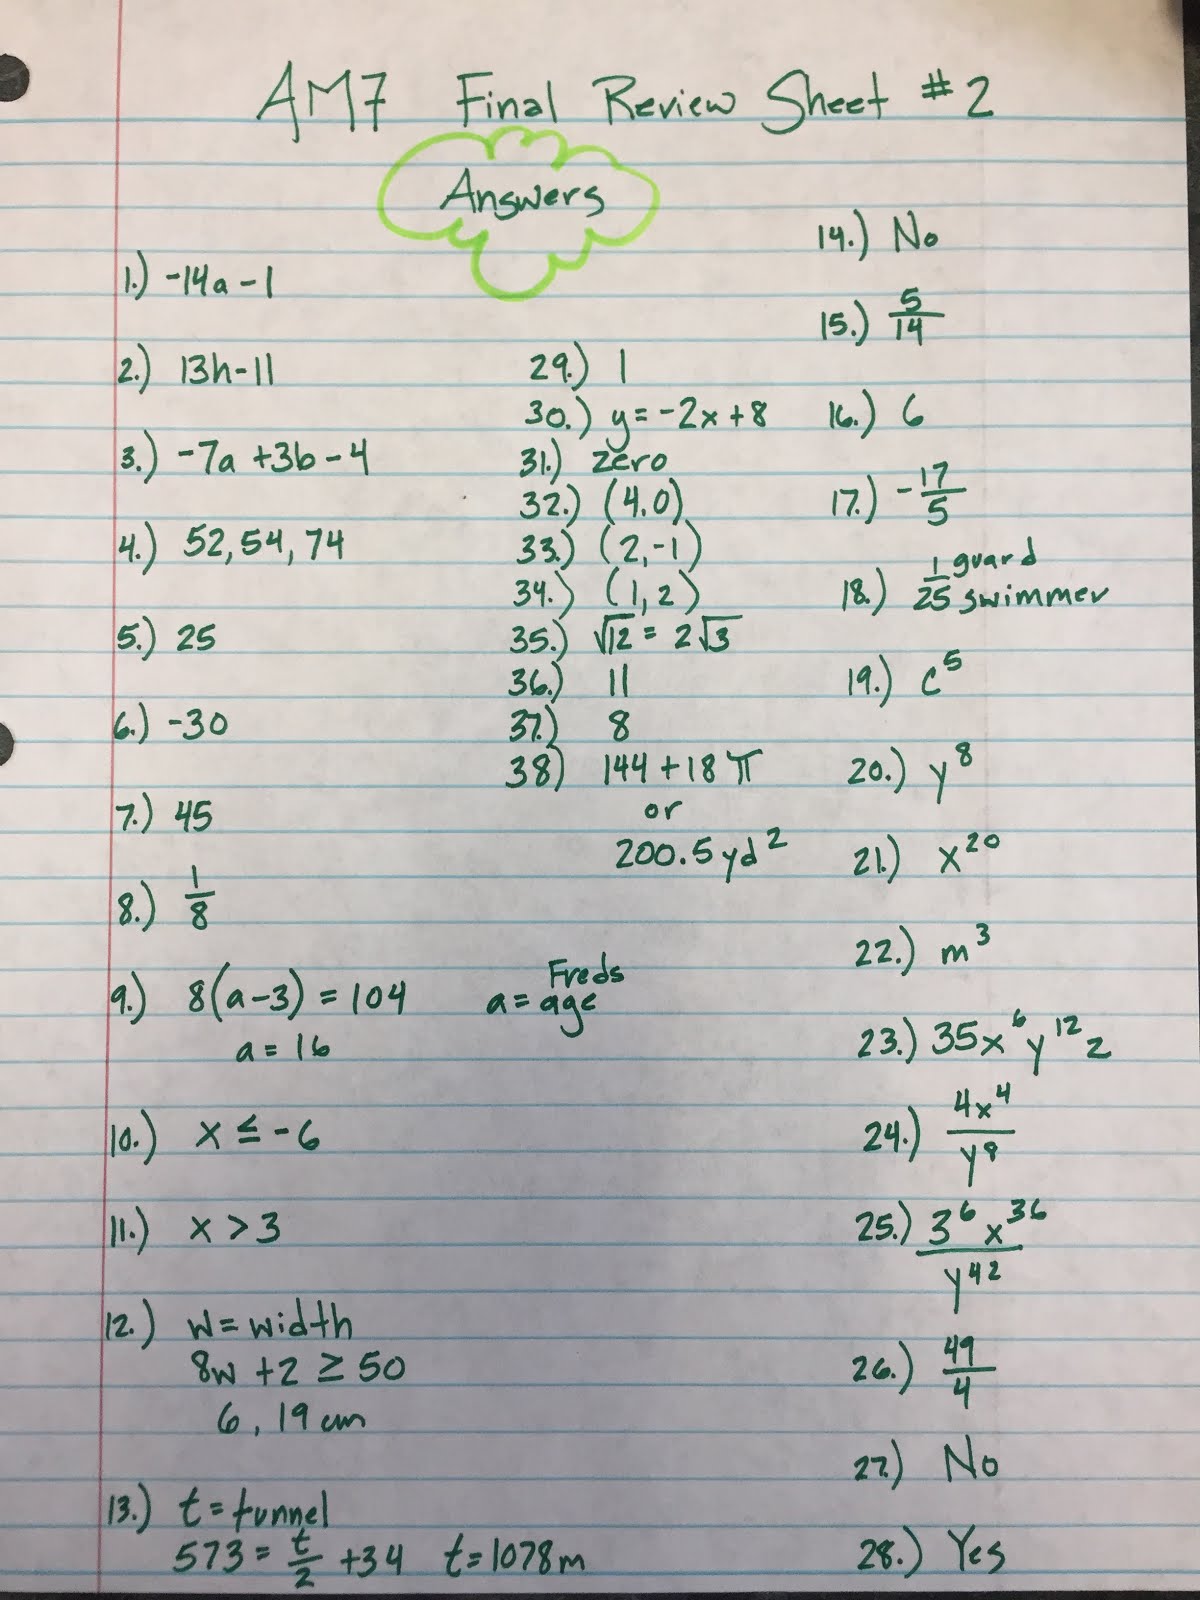 AM7 Final Review Sheet #2
Answers
1.) -14a-1
2.) 13h-11
3.) -7a+3b-4
4.) 52,54,74
5.) 25
6.) -30
7.) 45
8.) 1/8
9.) 8(a-3)=104
a=16
Freds
a=age
10.) x≤-6
11.) x>3
12.) w=width
8w+2≥50
6, 19cm
13.) t=tunnel
573=t/2+34 t=1078m
29.) 1
30.) y=-2x+8
31.) zero
32.) (4,0)
33.) (2,-1)
34.) (1,2)
35.) √12=2√3
36.) 11
37.) 8
38) 144+18π
or
200.5yd²
14.) No
15.) 5/14
16.) 6
17.) -17/5
18.) 1 guard
25 swimmer
19.) c⁵
20.) y⁸
21.) x²⁰
22.) m³
23.) 35x⁶y¹²z
24.) 4x⁴/y⁸
25.) 3⁶x³⁶/y⁴²
26.) 49/4
27.) No
28.) Yes